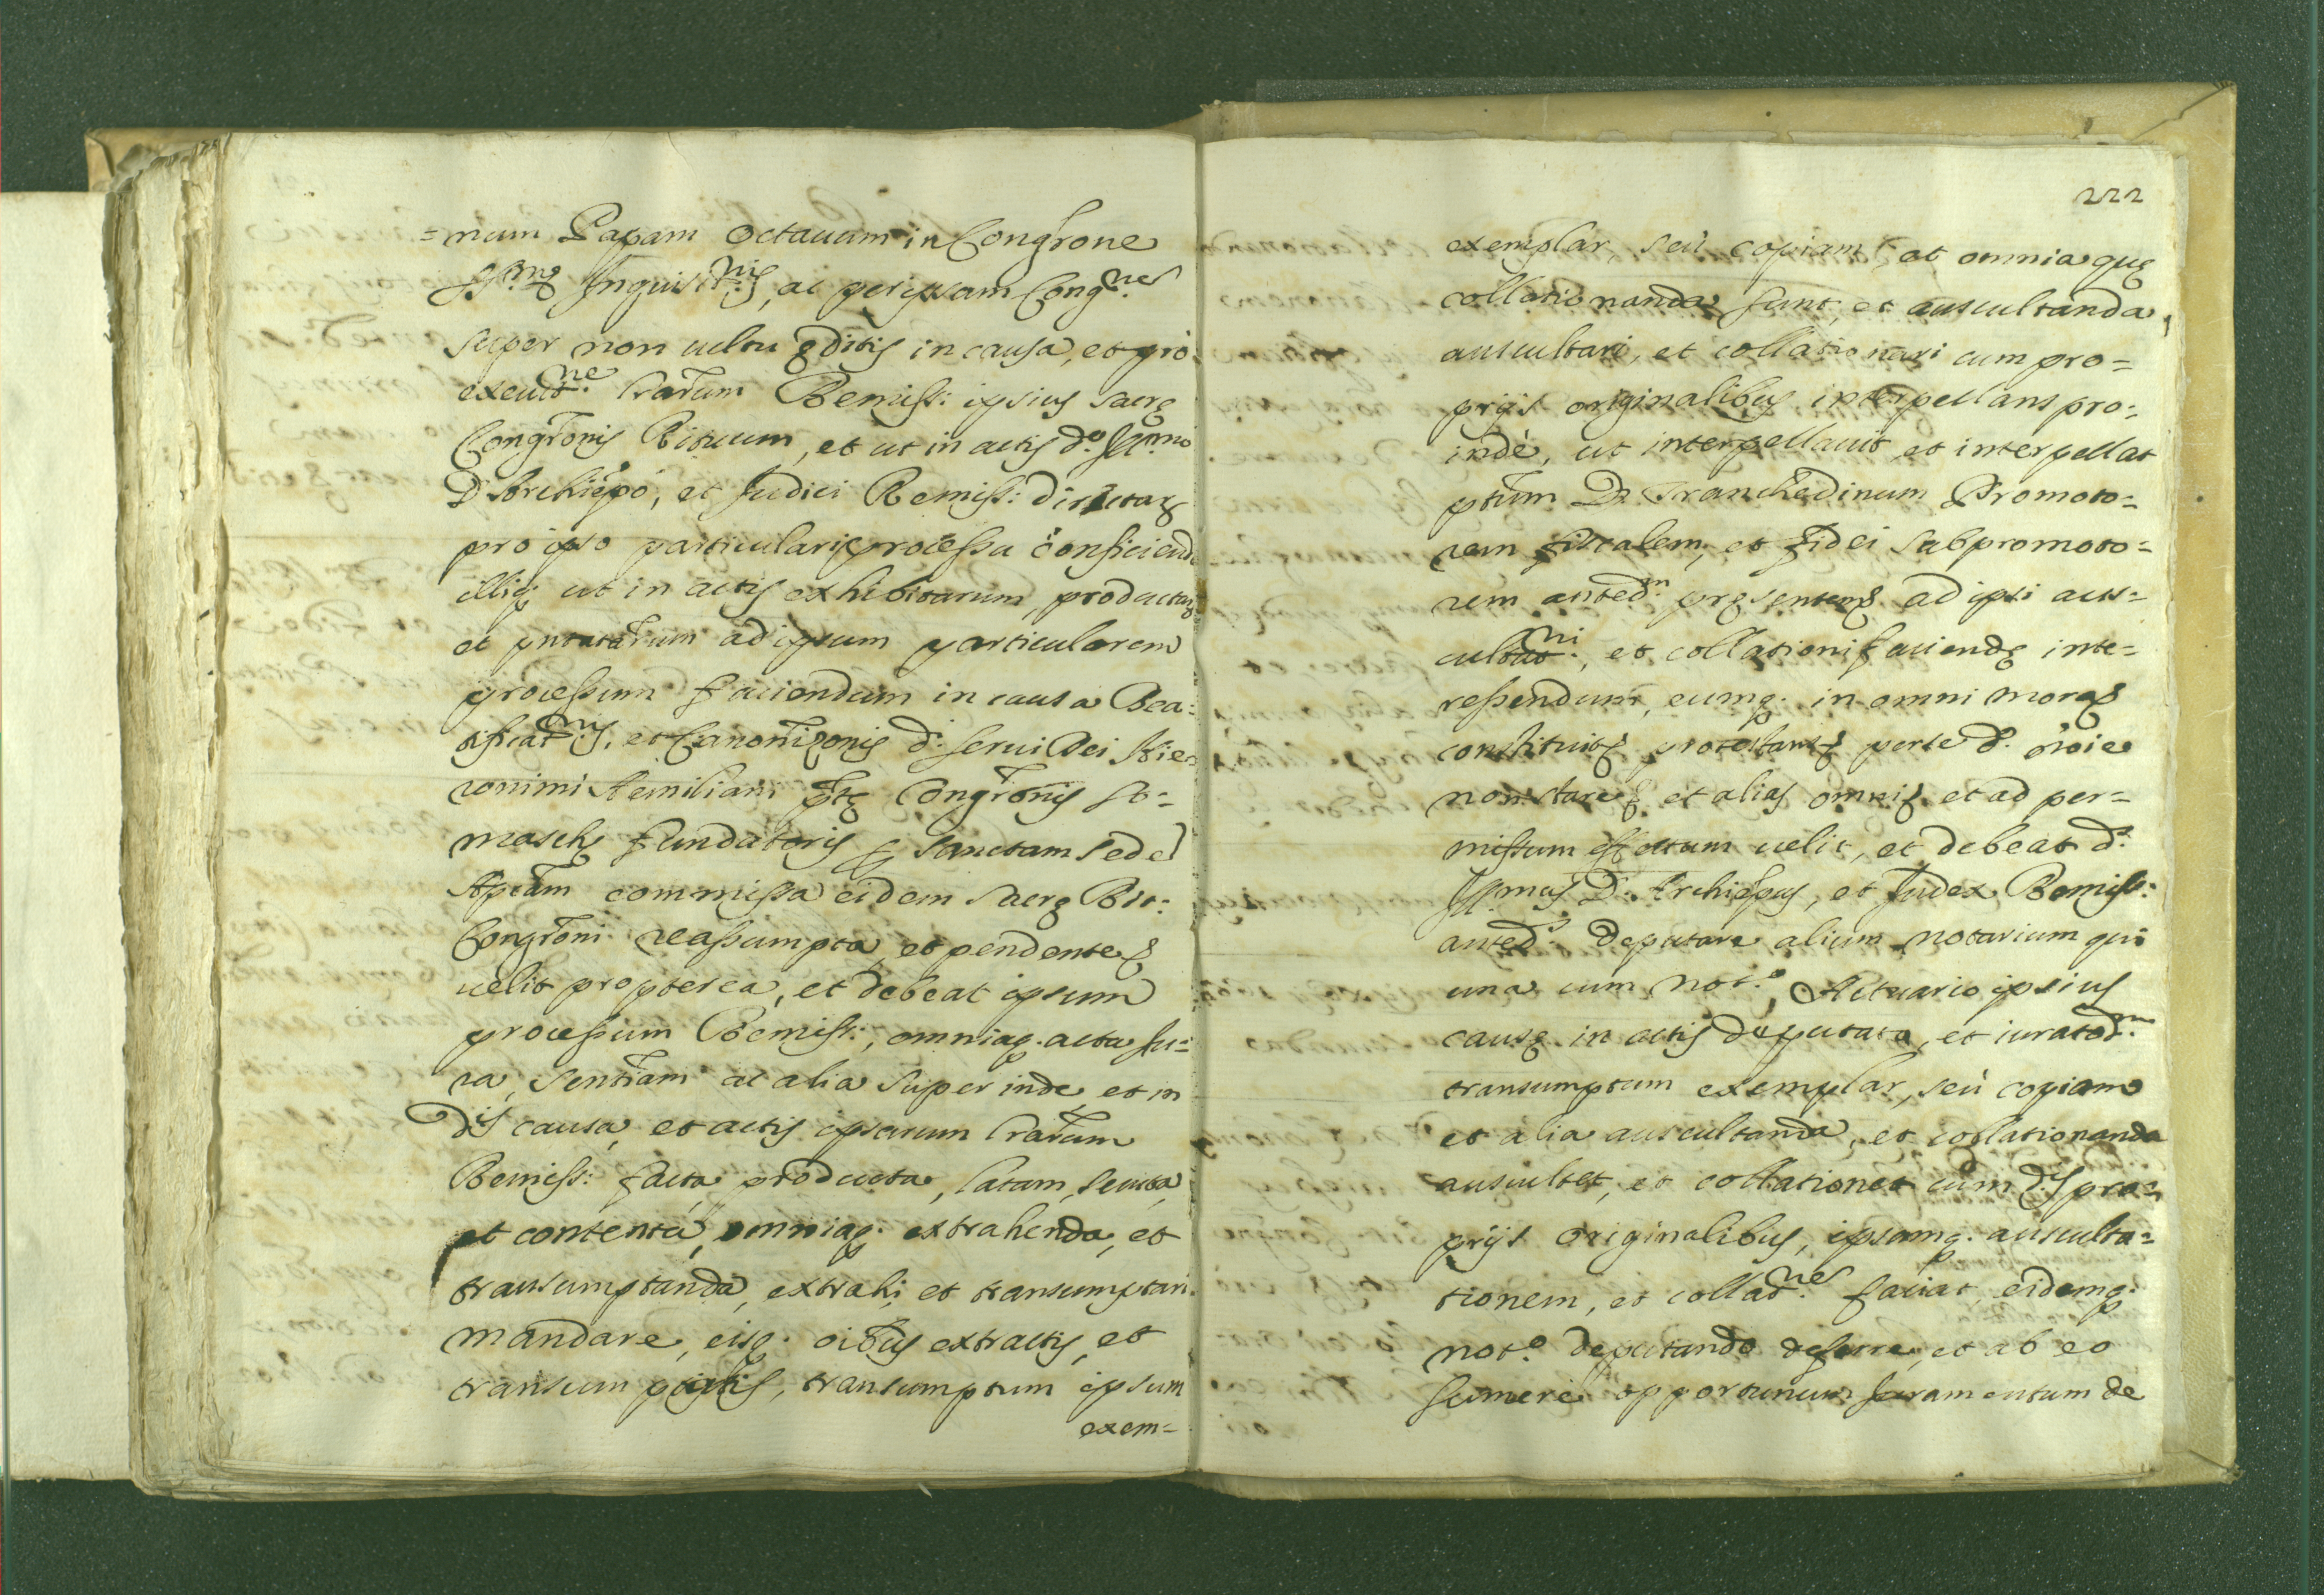 =num Papam Octauum in Congr̃one
SS.mę Inquisit.nis, ac per ipsam Cong.nes
super non cultu ęditis in causa, et pro
execut.ne Lr̃arum Remiss: ipsius sacrę
Congr̃onis Rituum, et ut in actis d.º Ill.mo
D Archiep̃o, et Judici Remiss: directarũ
pro ipso particulari processu conficiend
illiq; ut in actis exhibitarum, productarũ
et pñtatarum ad ipsum particularem
processum faciendum in causa Bea=
tificat.nis, et Canoniz̃onis d. serui Dei Hie=
ronimi Aemiliani ptę Congr̃onis So=
maschę fundatoris sanctam sede
Apćam commissa eidem sacrę Rit:
Congr̃oni reassumpta, et pendente
uelit propterea, et debeat ipsum
processum Remiss:, omniaq. acta iu=
ra, sentr̃iam ac alia super inde, et in
Dis causa, et actis ipsarum Lr̃arum
Remiss: facta producta, latam, secuta,
et contenta, omniaq. extrahenda, et
transumptanda, extrahi, et transumptari
mandare, eisq. oĩbus extractis, et
transumptatis, transumptum ipsum
exem=
222
exemplar, seù copiam, at omnia quę
collationanda sunt, et auscultanda,
auscultari, et collationari cum pro=
prijs originalibus interpellans pro=
indè, ut interpellauit, et interpellat
ptum D. Tranchedinum Promoto=
rem fiscalem, et fidei subpromoto=
rem anted.m pręsentem ad ipsi aus=
cultat.ni, et collationi faciendę inte=
ressendum, eumq. in omni mora
constituit protestans per se d. nõie
non stare et alias omnis et ad per=
missum effectum uelit, et debeat d.
Ill.mus D. Archiep̃us, et Judex Remiss:
anted.s deputare alium notarium qui
una cum Not.º, Actuario ipsius
causę in actis deputato, et iurato d.m
transumptum exemplar, seù copiam
et alia auscultanda, et collationanda
auscultet, et collationet cum d.is pro=
prijs originalibus, ipsamq. ausculta=
tionem, et collat.nes faciat, eidemq.
not.º deputando deferre, et ab eo
sumere opportunum Juramentum de